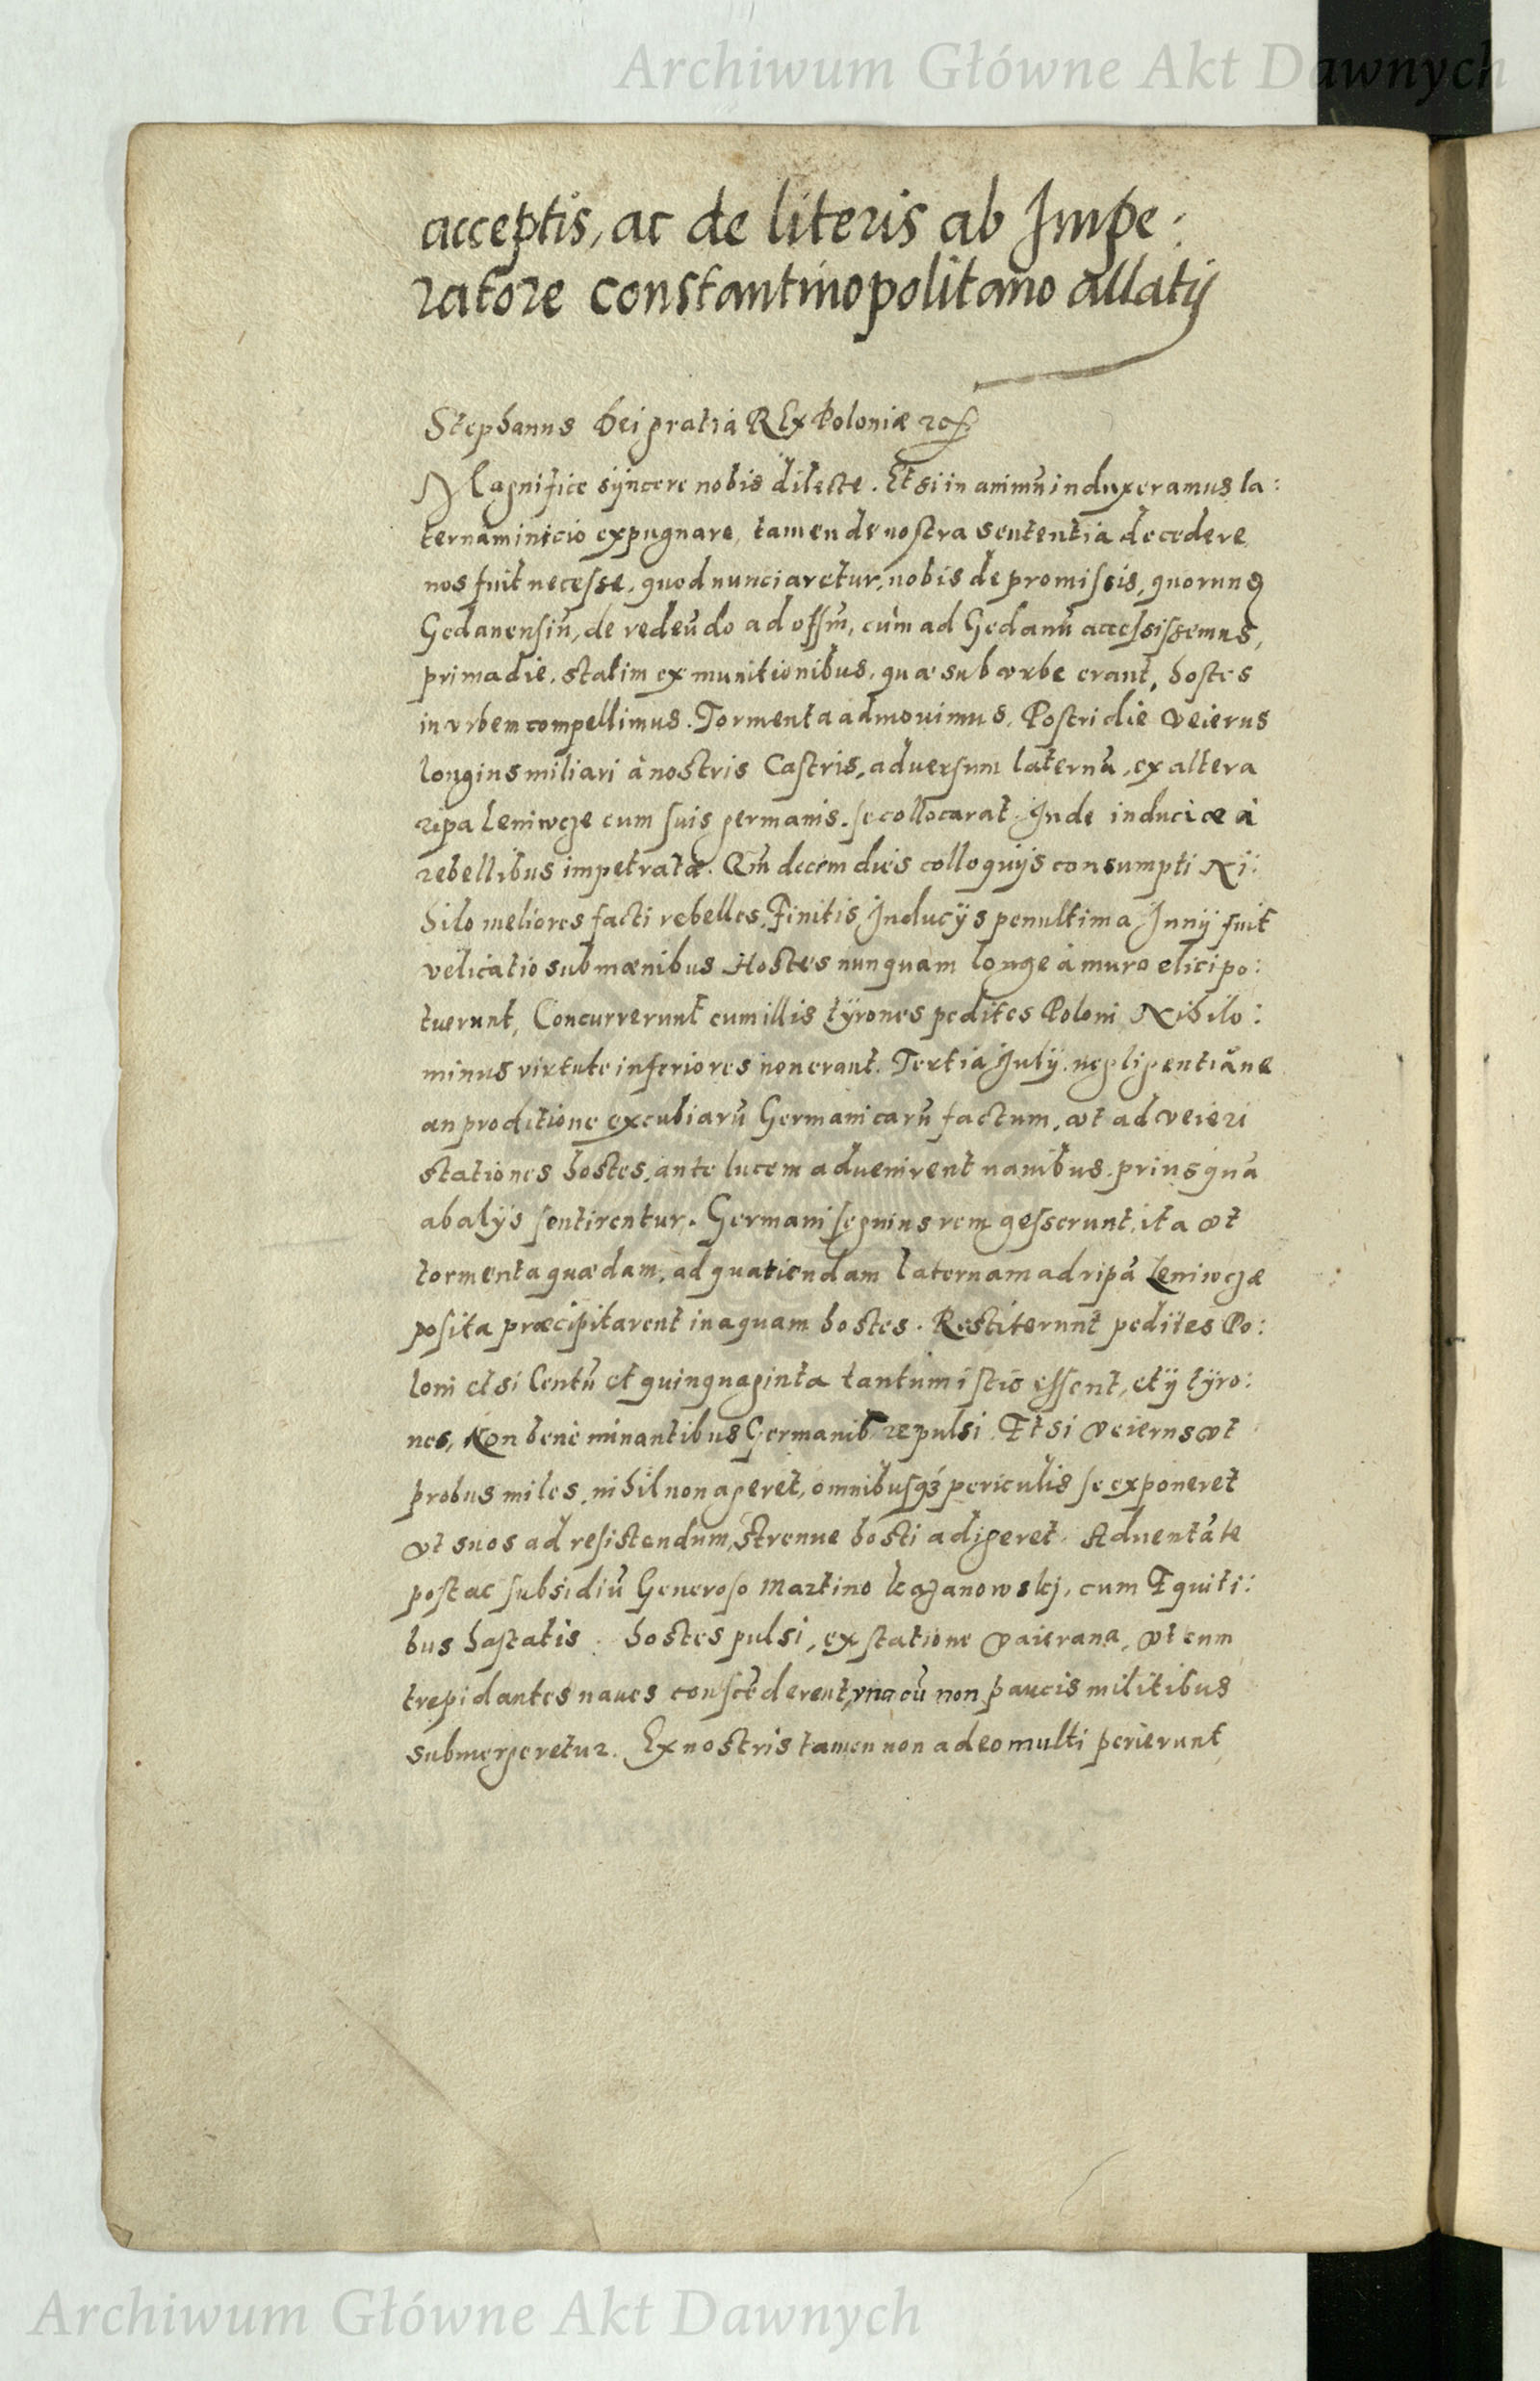 Archiwum Główne Akt Dawnych
acceptis, ac de literis ab Impe:
ratore constantinopolitano allatis
Stephanus Dei gratia REx Poloniæ
Magnifice syncere nobis dilecte. Et si in animū induxeramus la:
ternam inicio expugnare, tamen de nostra sententia decedere
nos fuit necesse, quod nunciaretur, nobis de promissis, quorunq
Gedanensiū, de redeūdo ad offm, cùm ad Gedanū accessissemus,
prima die, statim ex munitionibus, quæ sub vrbe erant, hostes
in vrbem compellimus. Tormenta admouimus. Postridie Veierus
longius miliari à nostris Castris, aduersum laternā, ex altera
ripa Leniwcze cum suis germanis. se collocarat. Inde induciæ à
rebellibus impetratæ. Qm̄ decem dies colloquijs consumpti Ni:
hilo meliores facti rebelles. Finitis Inducijs penultima Junij fuit
velicatio sub mænibus Hostes nunquam longe à muro elici po:
tuerunt, Concurrerunt cum illis tyrones pedites Poloni Nihilo:
minus virtute inferiores non erant. Tertia July. negligentiāne
an proditione excubiarū Germanicarū factum, vt ad veieri
stationes hostes, ante lucem aduenirent nauibus. priusquā
ab alijs sentirentur. Germani segnius rem gesserunt, ita vt
tormenta quædam, ad quatiendam laternam ad ripā Leniwczæ
posita præcipitarent in aquam hostes. Restiterunt pedites Po:
loni et si Centū et quinquaginta tantum istic essent, et ij tyro:
nes, Non bene minantibus Germanib repulsi. Et si Veierus vt
probus miles, nihil non ageret, omnibusq́ periculis se exponeret
vt suos ad resistendum, strenue hosti adigeret. Aduentāte
post ac subsidiū Generoso Martino kazanowskj, cum Equiti:
bus hastatis. hostes pulsi, ex statione Vaierana, vt eum
trepidantes naues conscēderent, vna cū non paucis militibus
submergeretur. Ex nostris tamen non adeo multi perierunt
Archiwum Główne Akt Dawnych